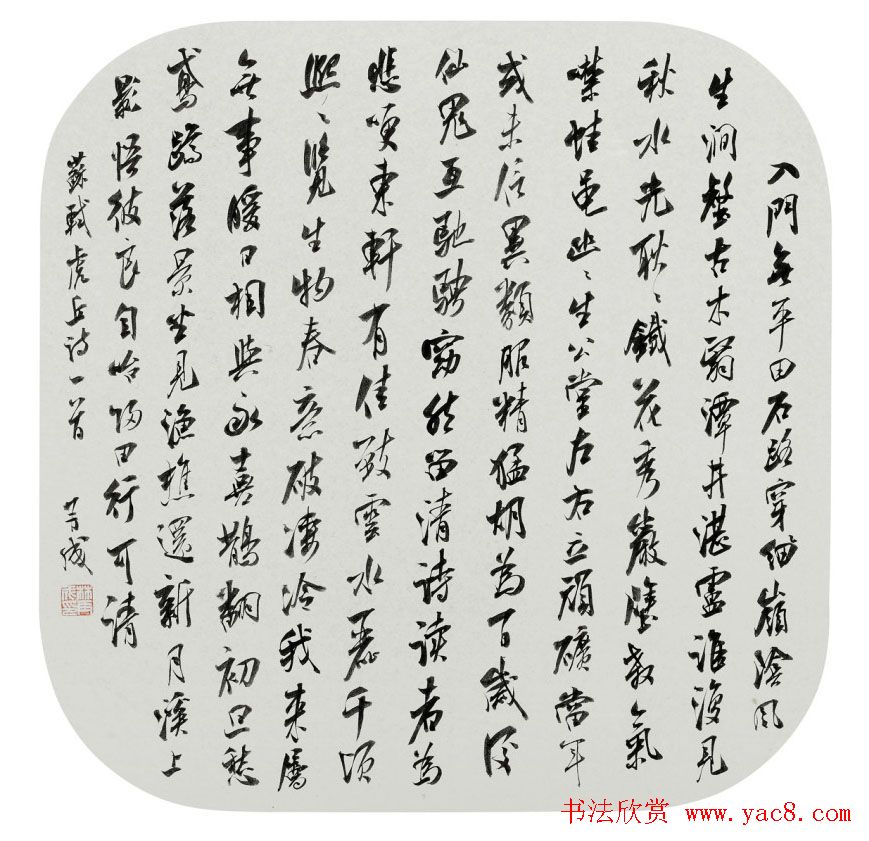 入門無平田石路穿細嶺陰風
生澗壑古木翳潭井湛盧誰復見
秋水光耿〻鐵花秀巖壁殺氣
噤蛙黽幽〻生公堂左右立頑礦當年
或未信異類服精猛胡為百歲後
仙鬼互馳騁窈然留清詩讀者為
悲哽東軒有佳致雲水麗千頃
熙〻覽生物春意破淒冷我來屬
無事暖日相與永喜鵲翻初旦愁
鳶蹲落景坐見漁樵還新月溪上
影悟彼良自咍歸田行可請
蘇軾虎丘詩一首
书法欣赏 www.yac8.com